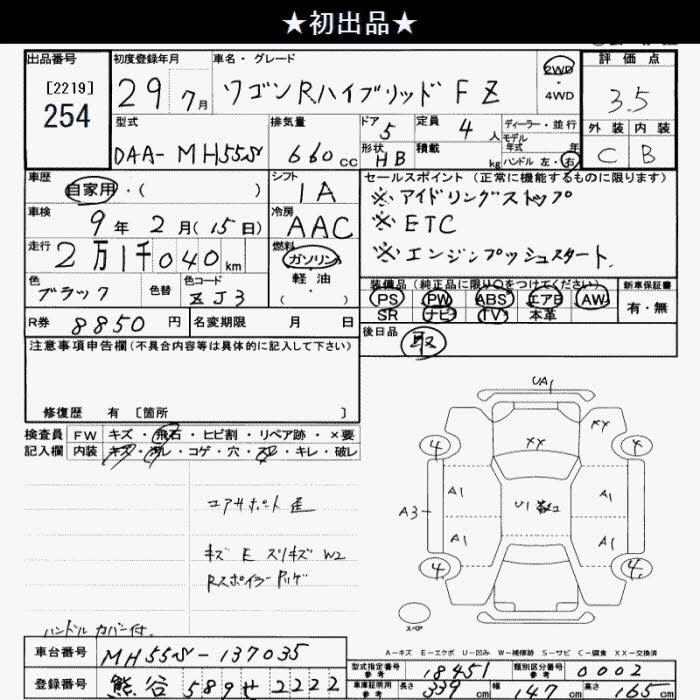 ★初出品★
出品番号 初度登録年月 車名・グレード 評価点
[2219]
254
29年 7月 ワゴンRハイブリッド FZ 2WD・4WD 3.5
型式 排気量 ドア 5 定員 4人 ディーラー・並行 外装 内装
DAA-MH55S 660cc 形状 HB 積載 kg モデル年式 年 C B
ハンドル 左・右
車歴 シフト セールスポイント (正常に機能するものに限ります)
自家用・( ) IA ※アイドリングストップ
車検 冷房 ※ETC
9年 2月(15日) AAC ※エンジンプッシュスタート
走行 燃料
2万1千040km ガソリン
軽油
( )
色 色替 色コード 装備品 (純正品に限り○をつけてください) 新車保証書
ブラック ZJ3 PS PW ABS エアB AW 有・無
SR ナビ TV 本革
R券 8850円 名変期限 月 日 後日品 取
注意事項申告欄(不具合内容等は具体的に記入して下さい)
修復歴 有 [箇所 ]
検査員 FW キズ・飛石・ヒビ割・リペア跡・×要
記入欄 内装 キズ・汚レ・コゲ・穴・スレ・キレ・破レ
コアサポート歪
キズ E スリキズ W2
Rスポイラー
ハンドルカバー付.
UA1
XX XX
4 4
A1 A1
A3 U1
A1 A1
4 4
スペア
A-キズ E-エクボ U-凹み W-補修跡 S-サビ C-腐食 XX-交換済
車台番号 MH55S-137035
型式指定番号 参考 18451 類別区分番号 参考 0002
登録番号 熊谷 589 せ 2222
車庫証明用 参考 長さ 339cm 幅 147cm 高さ 165cm